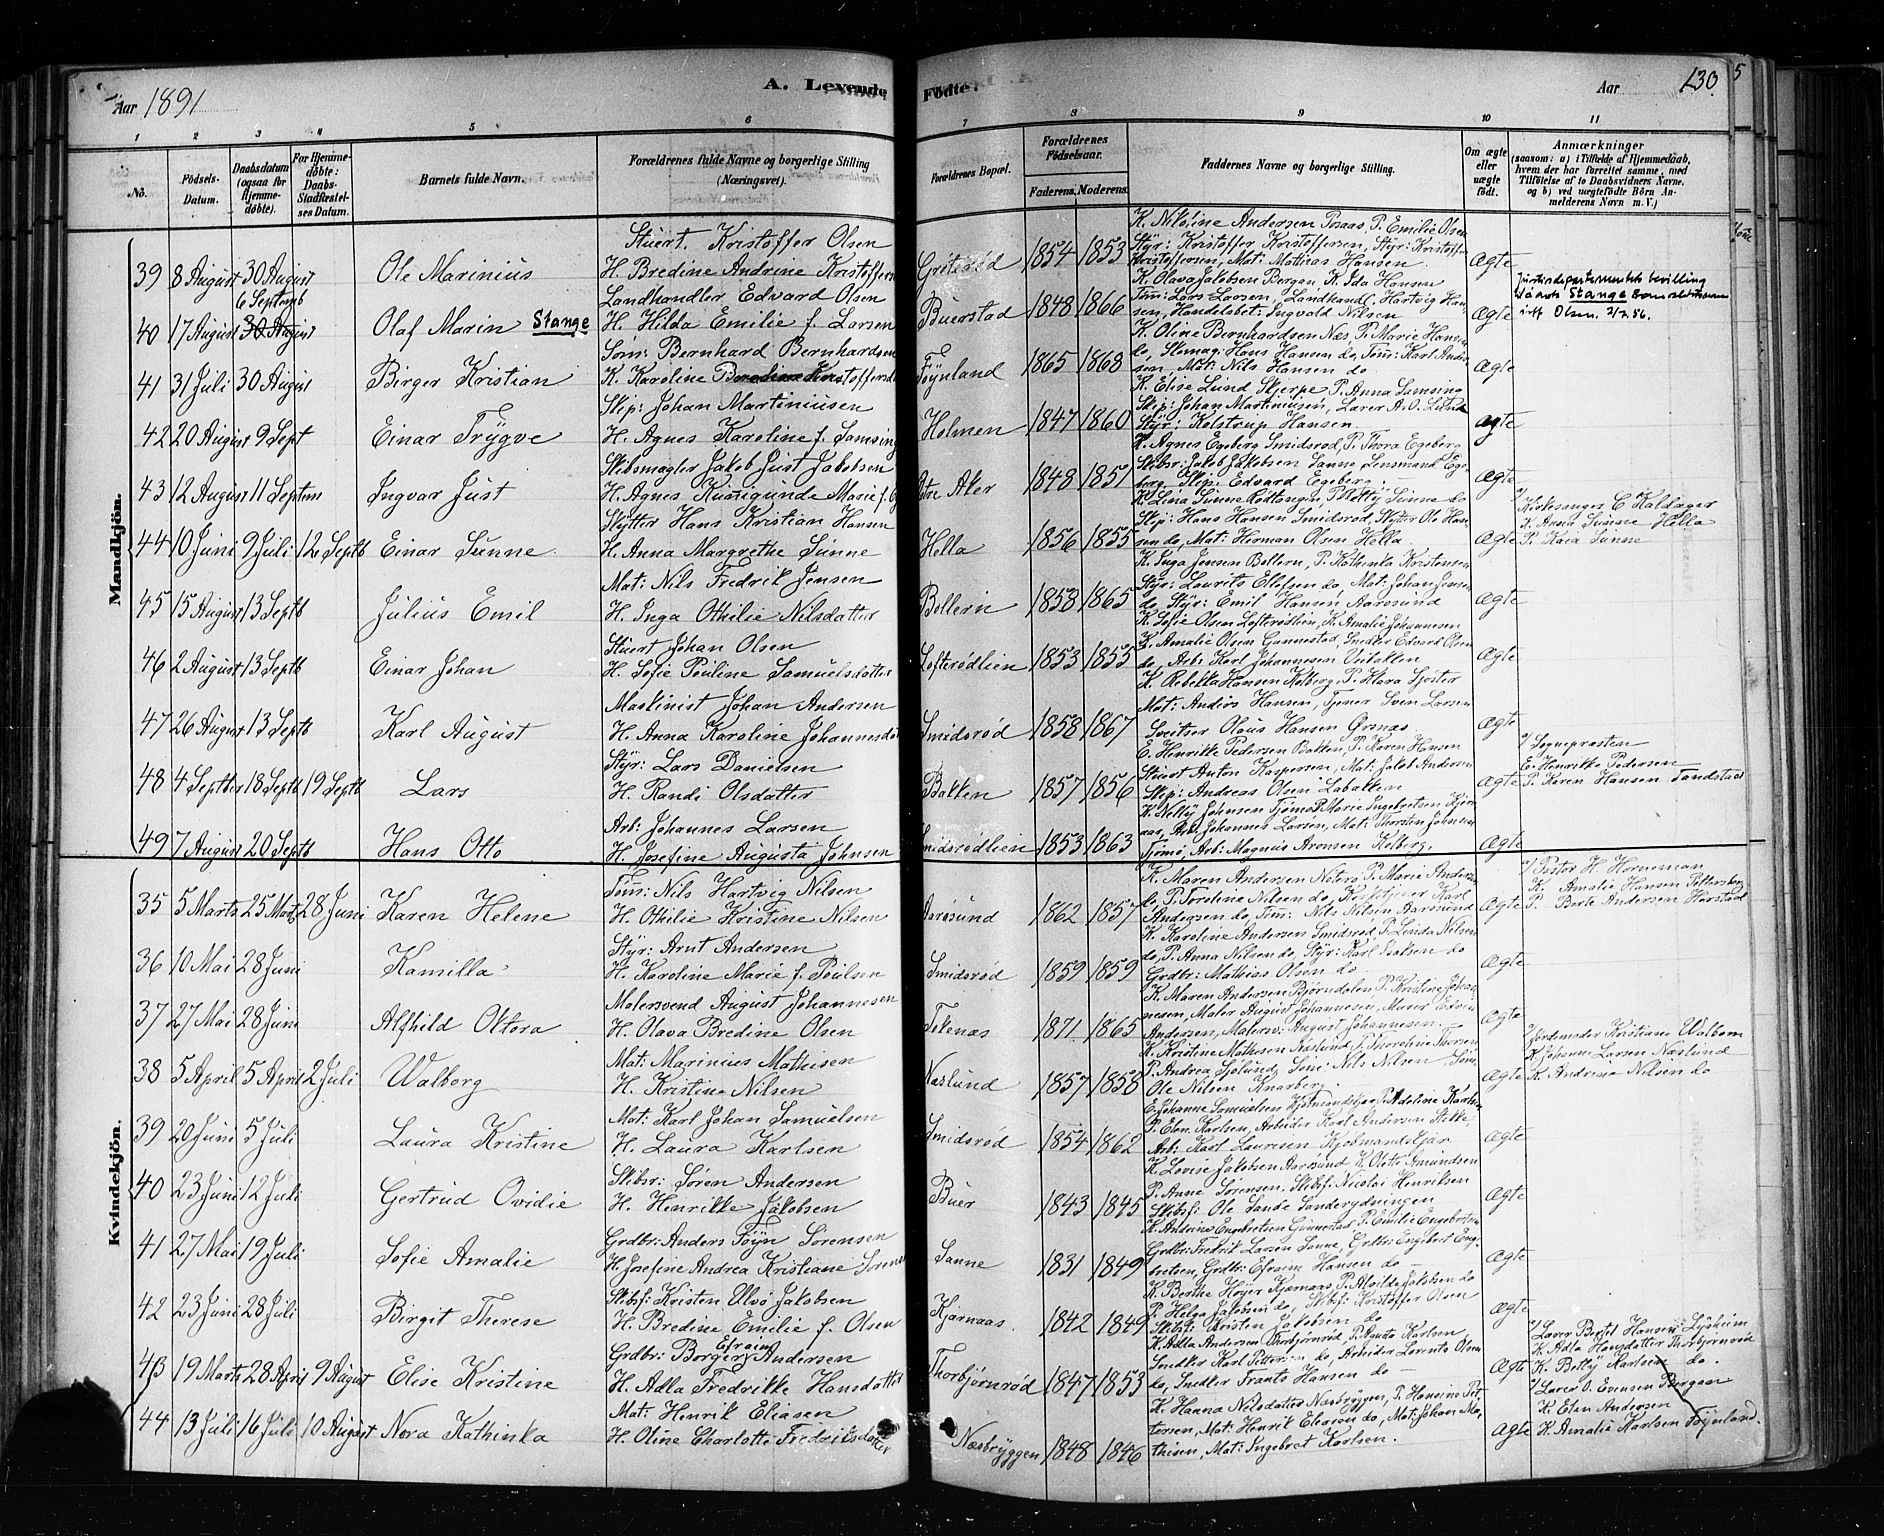 Aar 1891
A. Levende Fødte.
Aar
130
5
1 2 3 4 5 6 7 8 9 10 11
No.
Fødsels-Datum.
Daabsdatum (ogsaa for Hjemmedøbte).
For Hjemmedøbte: Daabs-Stadfæstelses Datum.
Barnets fulde Navn.
Forældrenes fulde Navne og borgerlige Stilling (Næringsvei).
Forældrenes Bopæl.
Forældrenes Fødselsaar.
Faderens. Moderens.
Faddernes Navne og borgerlige Stilling.
Om ægte eller uægte født.
Anmærkninger
(saasom: a) i Tilfælde af Hjemmedaab, hvem der har forrettet samme, med Tilføielse af to Daabsvidners Navne, og b) ved uægtefødte Børn Anmelderens Navn m. V.)
Mandkjön.
39 8 August 30 August Ole Marinius
Stuert. Kristoffer Olsen
H. Bredine Andrine Kristoffers
1854 1853
K. Nikoine Andersen Posaas P. Emilie Olsen
Styr: Kristoffer Kristoffersen, Styr: Kristoffer
Kristoffersen, Mat: Mathias Hansen
Ægte
40 17 August 30 August 6 Septemb Olaf Marin Stange
Landhandler Edvard Olsen
H. Hilda Emilie f. Larsen
Buerstad 1848 1866
K. Olava Jakobsen Bergan K. Ida Hansen
Tøm: Lars Larsen, Landhandl. Hartvig Han-
sen, Handelsbet: Ingvald Nilsen
Ægte
Justisdepartementets bevilling
Stange
Olsen. 2/2 56.
41 31 Juli 30 August Birger Kristian
Søm: Bernhard Bernhardsen
K. Karoline
Føynland 1865 1868
K. Oline Bernhardsen Næs P. Marie Hansen
do, Skomag: Hans Hansen do, Tøm: Karl Ander-
sen, Mat: Nils Hansen do
Ægte
42 20 August 9 Sept Einar Trygve
Skip: Johan Martiniusen
H. Agnes Karoline f. Samsing
Holmen 1847 1860
K. Elise Lund Skjerpe P. Anna Samsing
Skip: Johan Martiniusen, Lærer A. O. Lund
Styr: Kelstrup Hansen
Ægte
43 12 August 11 Septem Ingvar Just
Skibsmægler Jakob Just Jakobsen
H. Agnes Kunigunde Marie f.
Aker 1848 1857
K. Agnes Egeberg Smidsrød, P. Thora Egeberg
Skibsr: Jakob Jakobsen Sanne Lensmand Ege-
berg, Skip: Edvard Egeberg
Ægte
44 10 Juni 9 Juli 12 Septb Einar Sünne
Skytter Hans Kristian Hansen
H. Anna Margrethe Sünne
Hella 1856 1855
K. Lina Sünne Rødtangen P. Betty Sünne do
Skip: Hans Hansen Smidsrød, Skytter Ole Han-
sen do, Mat: Herman Olsen Hella
Ægte
Kirkesanger C Kaldager
K. Anna Sünne Hella
P. Kaia Sünne
45 15 August 13 Septb Julius Emil
Mat: Nils Fredrik Jensen
H. Inga Othilie Nilsdatter
Bollerin 1858 1865
K. Inga Jensen Bollern, P. Kathinka Kristensen
Styr: Laurits Ellefsen do, Mat: Johan Jensen
do, Styr: Emil Hansen Aarøsund
Ægte
46 2 August 13 Septb Einar Johan
Stuert Johan Olsen
H. Sofie Pouline Samuelsdatter
Lofterødlien 1853 1855
K. Sofie Olsen Lofterødlien, K. Amalie Johannesen
K. Amalie Olsen Gunnestad, Snedker Edvard Olsen
do, Arb: Karl Johannesen Vibakken
Ægte
47 26 August 13 Septb Karl August
Maskinist Johan Andersen
H. Anna Karoline Johannesdat
Smidsrød 1858 1867
K. Rebekka Hansen Kolberg, P. Klara Sjoster
Mat: Anders Hansen, Tjener Sven Larsen
Sveitser Olaus Hansen Ørsnæs
Ægte
48 4 Septber 18 Septb 19 Septb Lars
Styr: Lars Danielsen
H. Randi Olsdatter
Bakken 1857 1856
E. Henrikke Pedersen Bakken, P. Karen Hansen
Stuert Anton Kaspersen, Mat: Jakob Andersen
Skip: Andreas Olsen Labakken
Ægte
Sognepræsten
E. Henrikke Pedersen
P. Karen Hansen Tandstad
49 7 August 20 Septb Hans Otto
Arb: Johannes Larsen
H. Josefine Augusta Johnsen
Smidsrødlien 1853 1863
K. Nelly Johnsen Tjømø, P. Marie Ingebretsen Kjøn-
aas, Arb. Johannes Larsen, Mat: Thorsten Johnsen
Tjømø, Arb: Magnus Aronsen Kolberg.
Ægte
Kvindekjön.
35 5 Marts 25 Marts 28 Juni Karen Helene
Tøm: Nils Hartvig Nilsen
H. Othilie Kristine Nilsen
Aarøsund 1862 1857
K. Maren Andersen Nøtero P. Marie Andersen
do, P. Torstine Nilsen do, Karl
Andersen do, Tøm: Nils Nilsen Aarøsund
Ægte
Pastor H. Horneman
K. Amalie Hansen Pettersberg
P. Berte Andersen Harstad
36 10 Mai 28 Juni Kamilla
Styr: Arnt Andersen
H. Karoline Marie f. Poulsen
Smidsrød 1859 1859
K. Karoline Andersen Smidsrød P. Linda Nilsen
do, P. Anna Nilsen do, Styr: Karl Isaksen do
Grdbr: Mathias Olsen do
Ægte
37 27 Mai 28 Juni Alfhild Oktora
Malersvend August Johannesen
H. Olava Bredine Olsen
Tekenæs 1871 1865
K. Maren Andersen Bjørndalen P. Kristine Johan-
nesen, Maler August Johannesen, Murer Edvin
Andersen, Malersv: August Johannesen
Ægte
38 5 April 5 April 2 Juli Walborg
Mat: Marinius Mathisen
H. Kristine Nilsen
Næslund 1857 1858
K. Kristine Mathisen Næslund P. Thoraline Thorsen
P. Andrea Sjølund, Søm: Nils Nilsen, Søm:
Ole Nilsen Knarberg.
Ægte
Jordemoder Kristiane Walbom
K. Johanne Larsen Næslund
K. Andrine Nilsen do
39 20 Juni 5 Juli Laura Kristine
Mat: Karl Johan Samuelsen
H. Laura Karlsen
Smidsrød 1854 1862
E. Johanne Samuelsen Kjøbmandskjær P. Adeline Karlsen
P. Elen Karlsen, Arbeider Karl Andersen Stokke,
Arb: Karl Lauresen Kjøbmandskjær
Ægte
40 23 Juni 12 Juli Gertrud Ovidie
Skibsr: Søren Andersen
H. Henrikke Jakobsen
Buer 1843 1845
K. Lovise Jakobsen Aarøsund K. Olette Amundsen
P. Anne Sørensen. Skibsf: Nicolai Henriksen
Skibsf: Ole Sande Sanderydningen
Ægte
41 27 Mai 19 Juli Sofie Amalie
Grdbr: Anders Føyn Sørensen
H. Josefine Andrea Kristiane Sørens
Sanne 1831 1849
K. Andrine Engebretsen Gunnestad P. Emilie Engebretsen
Grdbr: Fredrik Larsen Sanne, Grdbr: Engebret Enge-
bretsen, Grdbr: Efraim Hansen do
Ægte
42 23 Juni 28 Juli Birgit Therese
Skibsf: Kristen Ulvø Jakobsen
H. Bredine Emilie f. Olsen
Kjørnaas 1842 1849
K. Berthe Høyer Kjørnaas, P. Alvilde Jakobsen do
P. Helga Jakobsen do, Skibsf: Kristoffer Olsen
Skibsf: Kristen Jakobsen do
Ægte
43 19 Marts 28 April 9 August Elise Kristine
Grdbr: Borger Efraim Andersen
H. Adla Fredrikke Hansdatter
Thorbjørnrød 1847 1853
K. Adla Andersen Thorbjørnrød, P. Agusta Karlsen
Snedker Karl Pettersen do, Arbeider Lorents Olsen
do, Snedker Frants Hansen do
Ægte
Lærer Bertel Hansen Lysheim
K. Adla Hansdatter Thorbjørnrød
K. Betty Karlsen do.
44 13 Juli 16 Juli 10 August Nora Kathinka
Mat: Henrik Eliasen
H. Oline Charlotte Fredriksdatter
Næsbryggen 1848 1846
K. Hanna Nilsdatter Næsbryggen, P. Hansine Pet-
tersen, Mat: Henrik Eliasen do, Mat: Johan Ma-
thisen, Mat: Ingebret Karlsen.
Ægte
Lærer O. Evensen Bergan
K. Elen Andersen
K. Amalie Karlsen Føynland.